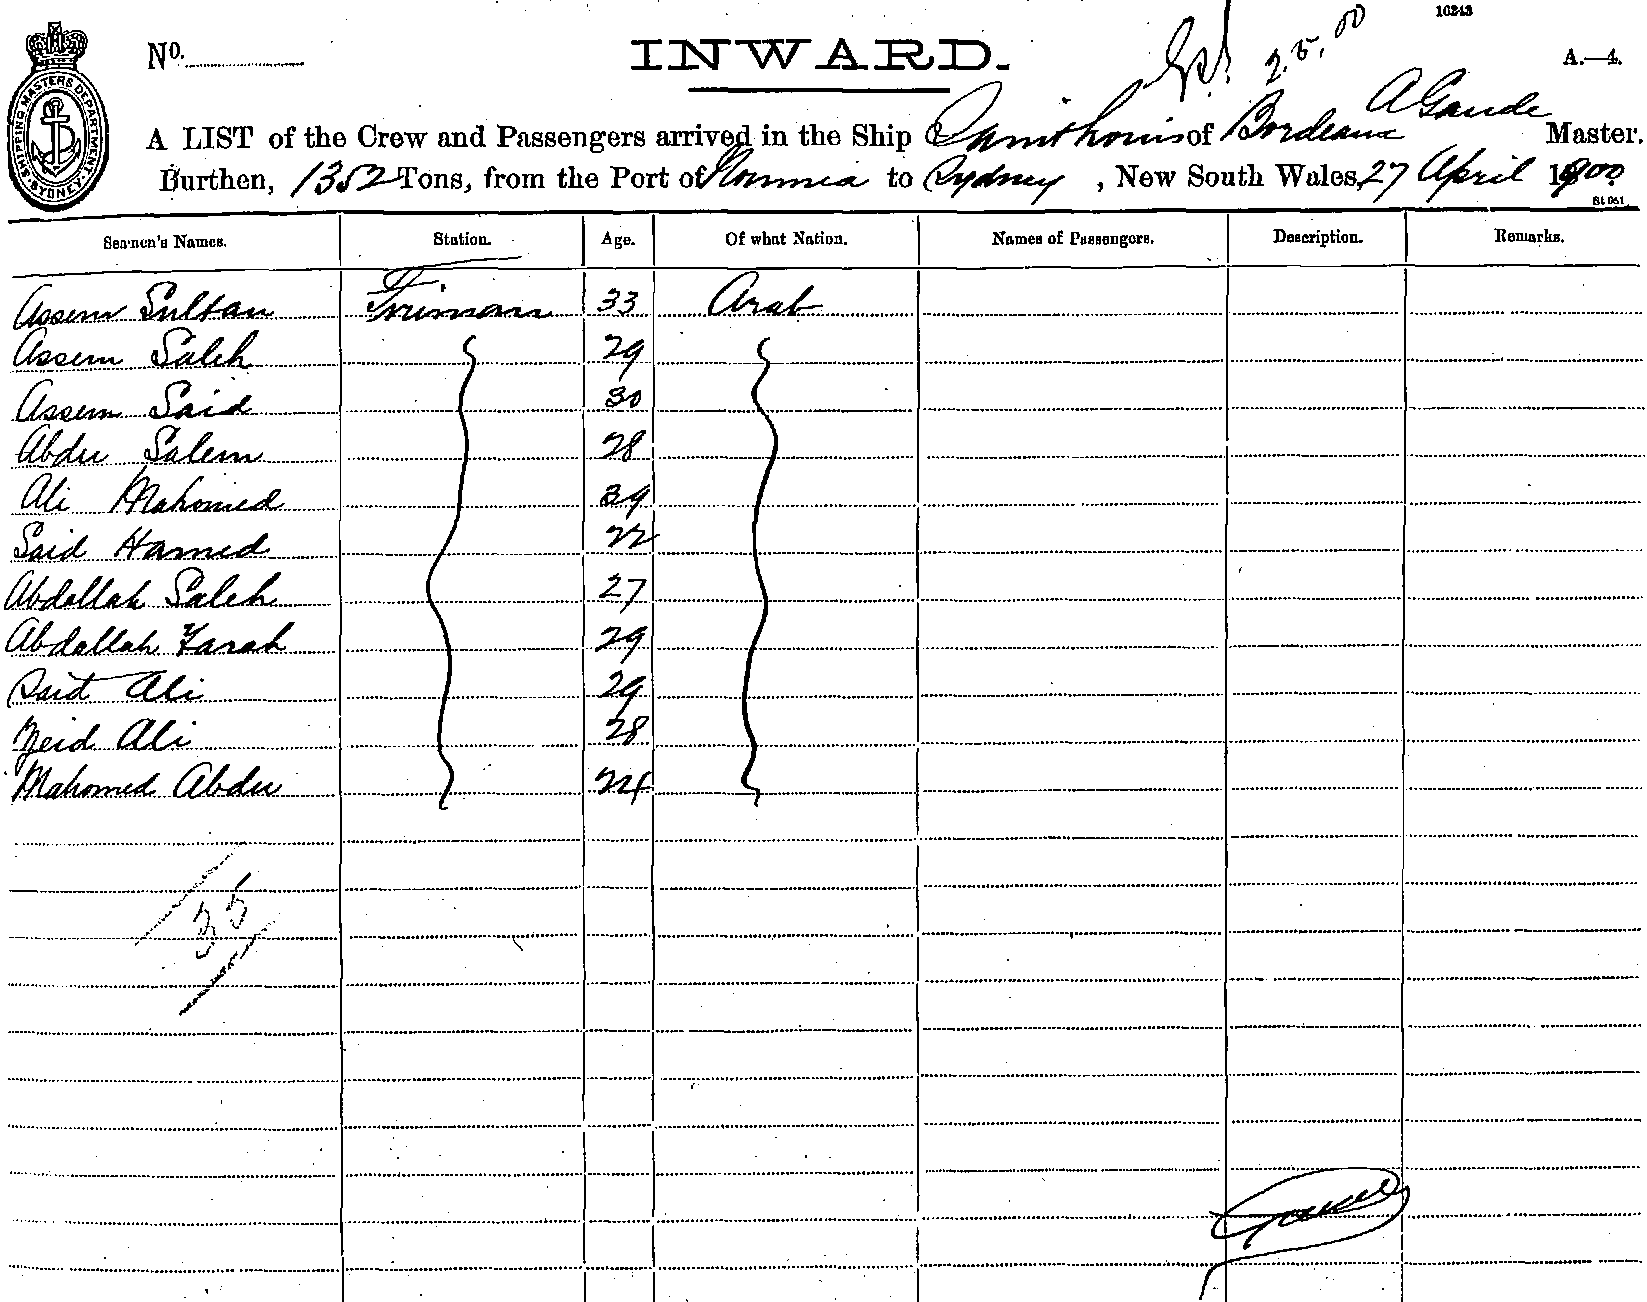 10343
SHIPPING MASTERS DEPARTMENT SYDNEY
No.
INWARD.
2.5.00
A.—4.
A Gaude
A LIST of the Crew and Passengers arrived in the Ship of Bordeaux Master.
Burthen, 1352 Tons, from the Port of Noumea to Sydney, New South Wales, 27 April 1900
St 051
Seamen's Names. Station. Age. Of what Nation. Names of Passengers. Description. Remarks.
Assem Sultan 33 Arab
Assem Saleh 29
Assem Said 30
Abdu Salem 28
Ali Mahomed 39
Said Hamed 22
Abdallah Saleh 27
Abdallah Farah 29
Said Ali 29
Zeid Ali 28
Mahomed Abdu 24
35